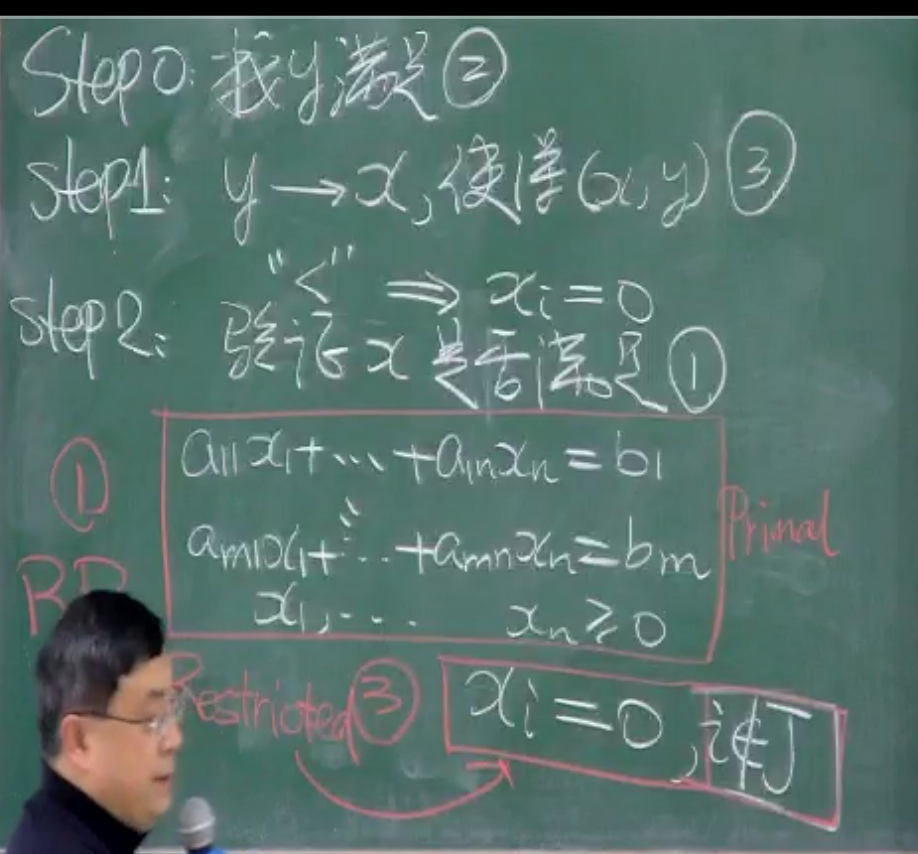 Step0: 找y满足②
step1: y→x, 使得(x,y)③
"<" ⇒ xi=0
step2: 验证x是否满足①
① a11x1+···+a1nxn=b1
am1x1+···+amnxn=bm
Primal
RP
x1,··· xn≥0
Restricted③ xi=0, i∉J